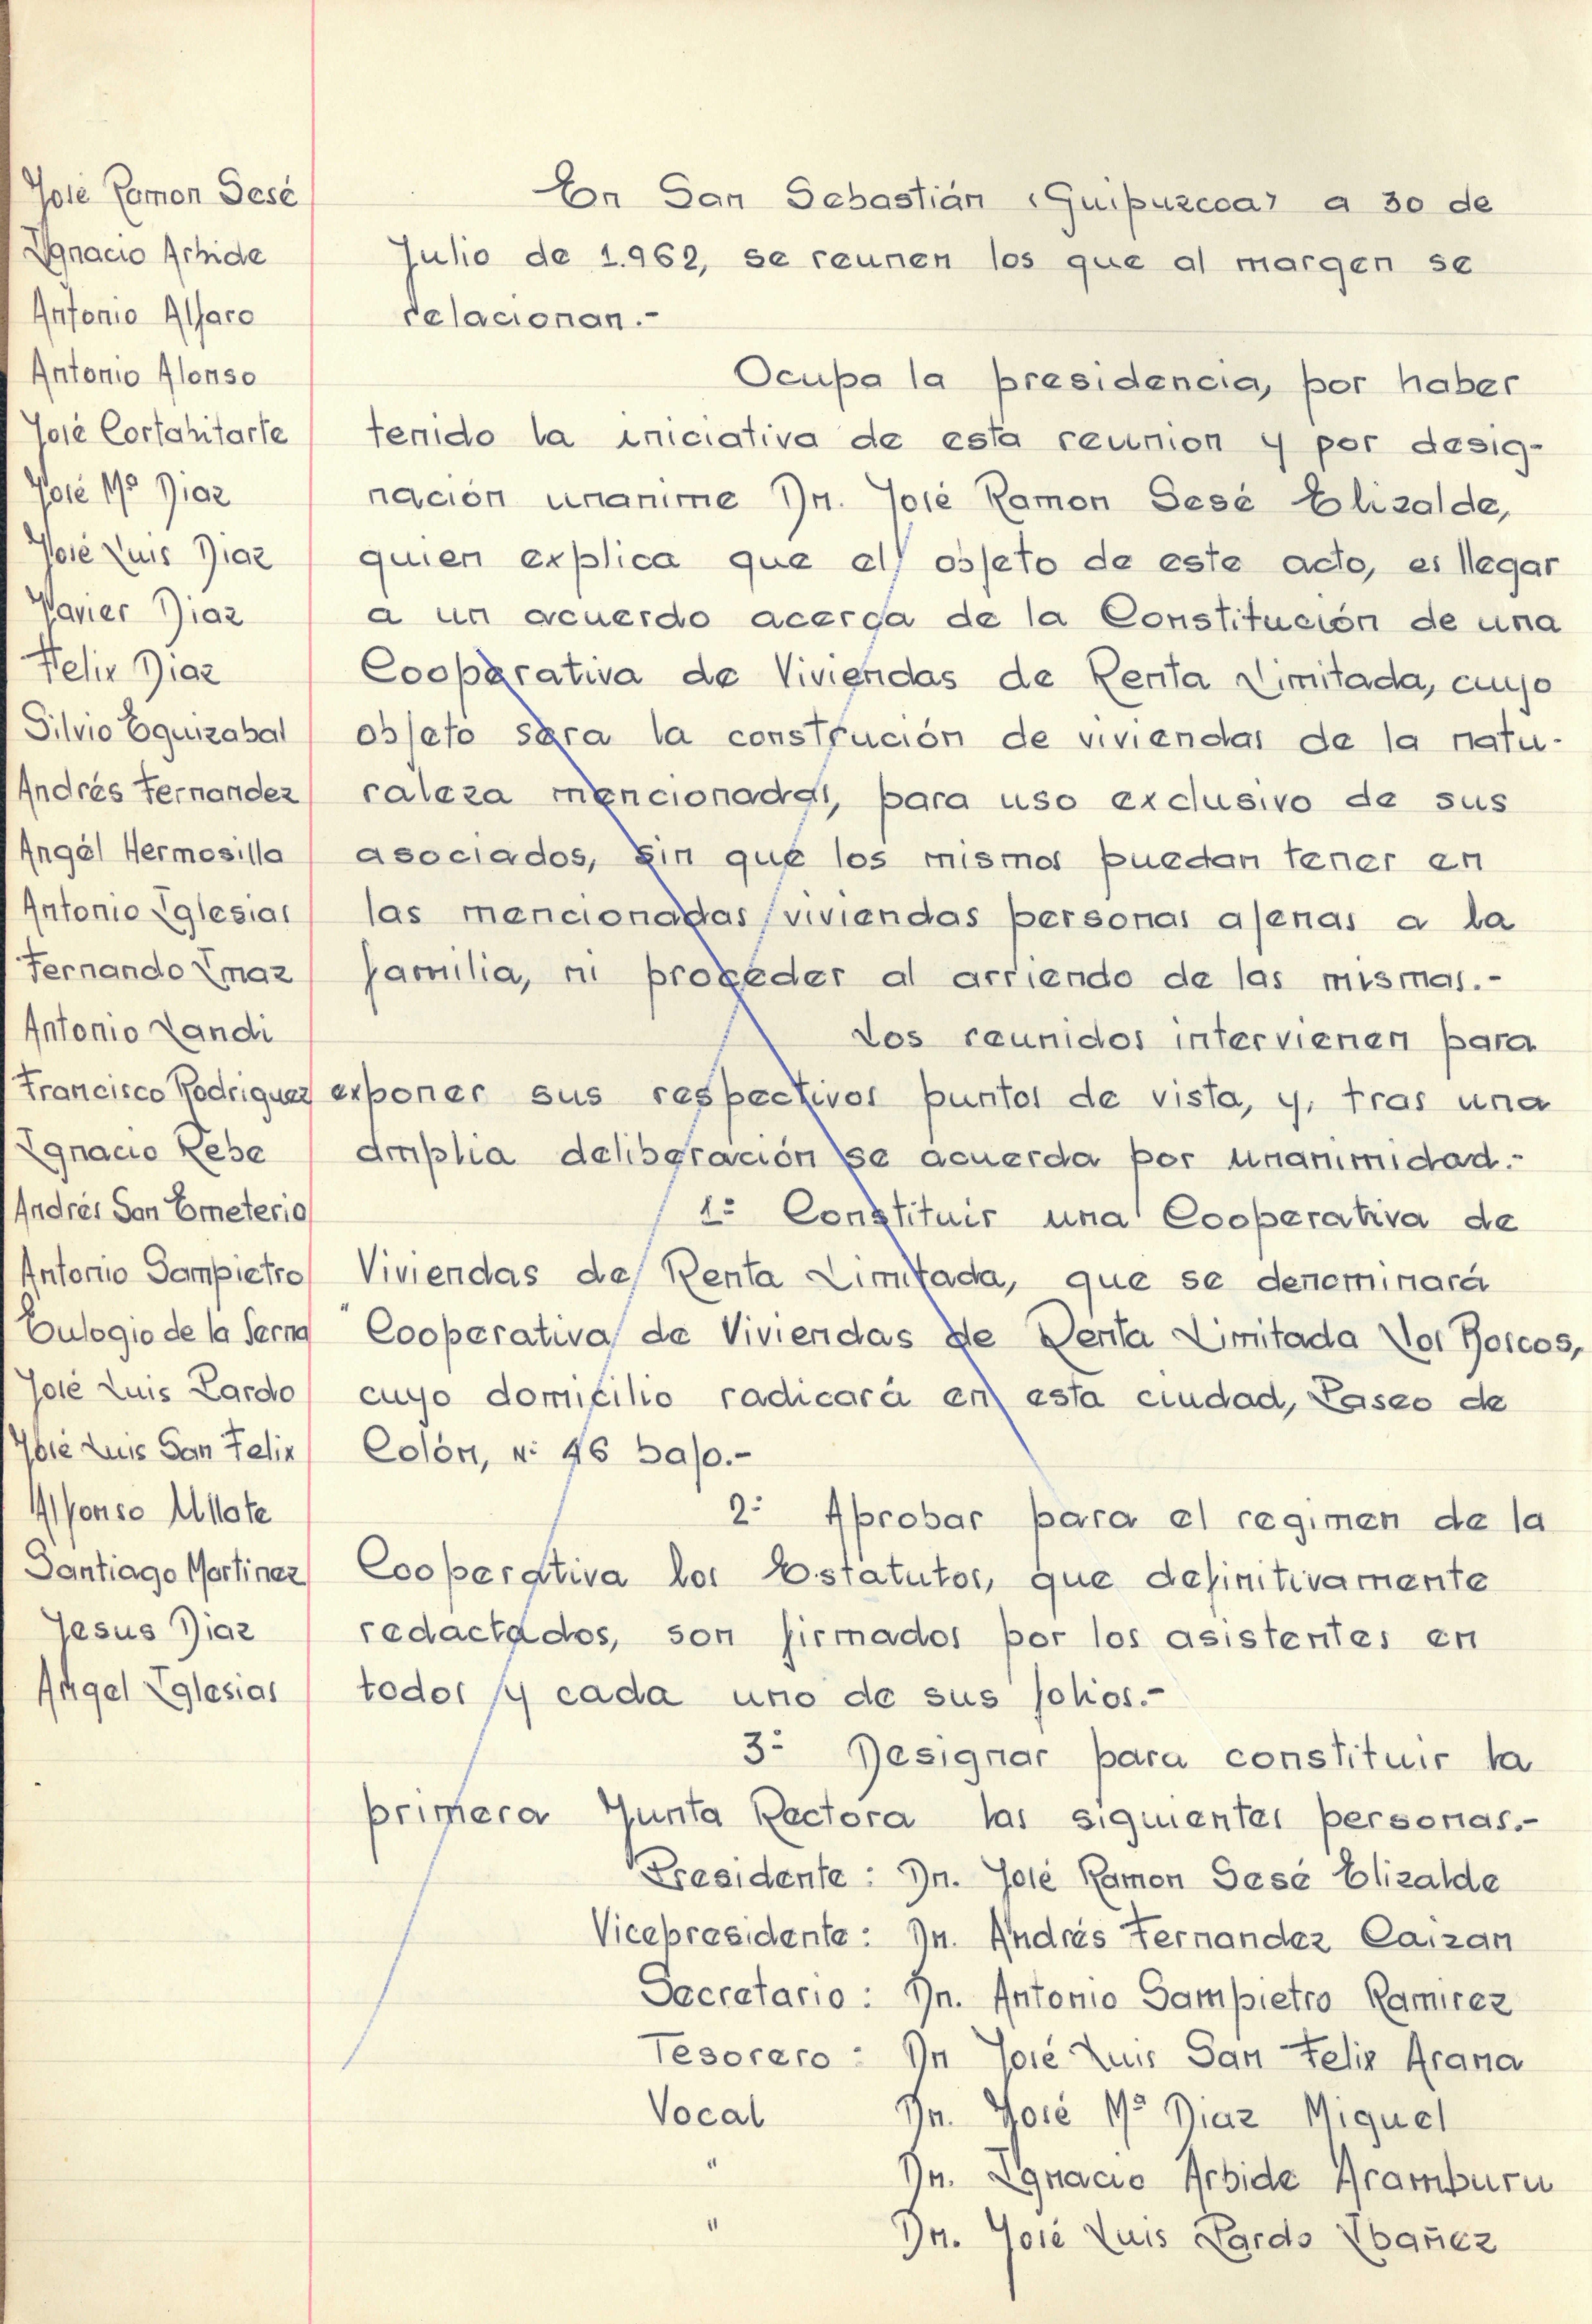 José Ramon Sesé
Ignacio Arbide
Antonio Alfaro
Antonio Alonso
José Cortahitarte
José Mª Diaz
José Luis Diaz
Xavier Diaz
Felix Diaz
Silvio Eguizabal
Andrés Fernandez
Angél Hermosilla
Antonio Iglesias
Fernando Imaz
Antonio Landi
Francisco Rodriguez
Ignacio Rebe
Andrés San Emeterio
Antonio Sampietro
Eulogio de la Serna
José Luis Pardo
José Luis San Felix
Alfonso Ullate
Santiago Martinez
Jesus Diaz
Angel Iglesias
En San Sebastián (Guipuzcoa) a 30 de
Julio de 1.962, se reunen los que al margen se
relacionan.-
Ocupa la presidencia, por haber
tenido la iniciativa de esta reunion y por desig-
nación unanime Dn. José Ramon Sesé Elizalde,
quien explica que el objeto de este acto, es llegar
a un acuerdo acerca de la Constitución de una
Cooperativa de Viviendas de Renta Limitada, cuyo
objeto sera la construción de viviendas de la natu-
raleza mencionadas, para uso exclusivo de sus
asociados, sin que los mismos puedan tener en
las mencionadas viviendas personas ajenas a la
familia, ni proceder al arriendo de las mismas.-
Los reunidos intervienen para
exponer sus respectivos puntos de vista, y, tras una
amplia deliberación se acuerda por unanimidad.-
1º Constituir una Cooperativa de
Viviendas de Renta Limitada, que se denominará
"Cooperativa de Viviendas de Renta Limitada Los Boscos,
cuyo domicilio radicará en esta ciudad, Paseo de
Colón, Nº 46 bajo.-
2º Aprobar para el regimen de la
Cooperativa los Estatutos, que definitivamente
redactados, son firmados por los asistentes en
todos y cada uno de sus folios.-
3º Designar para constituir la
primera Junta Rectora las siguientes personas.-
Presidente : Dn. José Ramon Sesé Elizalde
Vicepresidente : Dn. Andrés Fernandez Caizan
Secretario : Dn. Antonio Sampietro Ramirez
Tesorero : Dn José Luis San Felix Arana
Vocal Dn. José Mª Diaz Miguel
" Dn. Ignacio Arbide Aramburu
" Dn. José Luis Pardo Ibañez